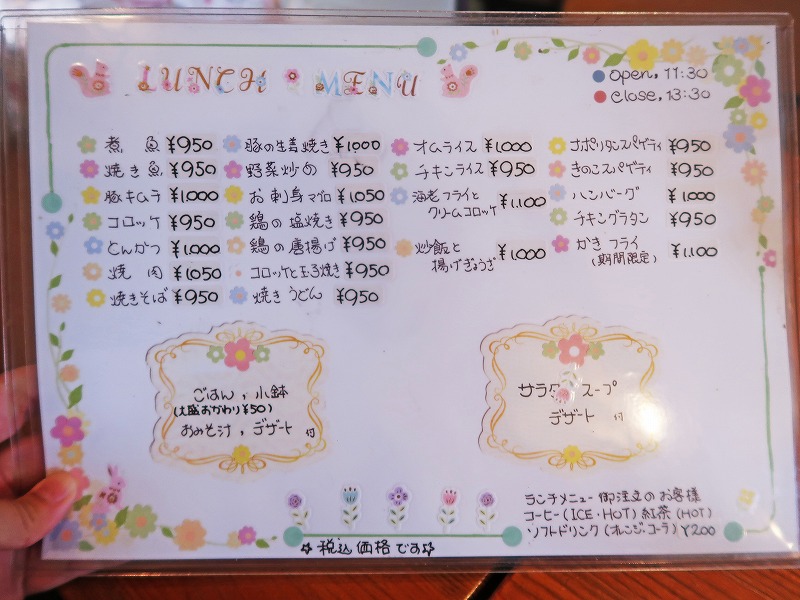 LUNCH MENU
open, 11:30
close, 13:30
煮魚 ¥950
焼き魚 ¥950
豚キムラ ¥1,000
コロッケ ¥950
とんかつ ¥1,000
焼肉 ¥1,050
焼きそば ¥950
豚の生姜焼き ¥1,000
野菜炒め ¥950
お刺身マグロ ¥1,050
鶏の塩焼き ¥950
鶏の唐揚げ ¥950
コロッケと玉子焼き ¥950
焼きうどん ¥950
オムライス ¥1,000
チキンライス ¥950
海老フライと
クリームコロッケ ¥1,100
炒飯と
揚げぎょうざ ¥1,000
ナポリタンスパゲティ ¥950
きのこスパゲティ ¥950
ハンバーグ ¥1,000
チキングラタン ¥950
かきフライ
(期間限定) ¥1,100
ごはん, 小鉢
(大盛おかわり¥50)
おみそ汁, デザート 付
サラダ スープ
デザート 付
ランチメニュー御注文のお客様
コーヒー(ICE・HOT) 紅茶(HOT)
ソフトドリンク(オレンジ・コーラ) ¥200
☆税込価格です☆